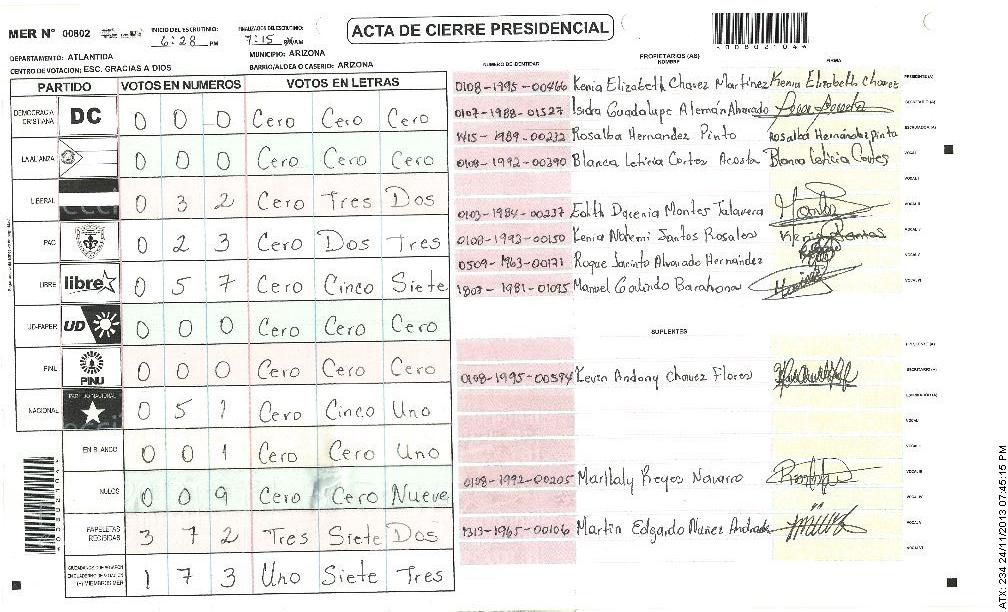 MER N° 00802 INICIO DEL ESCRUTINIO: 6:28 PM FINALIZADO DEL ESCRUTINIO: 7:15 PM
ACTA DE CIERRE PRESIDENCIAL
DEPARTAMENTO: ATLANTIDA MUNICIPIO: ARIZONA
CENTRO DE VOTACION: ESC. GRACIAS A DIOS BARRIO/ALDEA O CASERIO: ARIZONA
PARTIDO VOTOS EN NUMEROS VOTOS EN LETRAS
DEMOCRACIA CRISTIANA DC 0 0 0 Cero Cero Cero
LA ALIANZA 0 0 0 Cero Cero Cero
LIBERAL 0 3 2 Cero Tres Dos
PAC 0 2 3 Cero Dos Tres
LIBRE libre 0 5 7 Cero Cinco Siete
UD-FAPER UD 0 0 0 Cero Cero Cero
PINU 0 0 0 Cero Cero Cero
NACIONAL PARTIDO NACIONAL 0 5 1 Cero Cinco Uno
EN BLANCO 0 0 1 Cero Cero Uno
NULOS 0 0 9 Cero Cero Nueve
PAPELETAS RECIBIDAS 3 7 2 Tres Siete Dos
CIUDADANOS QUE VOTARON EN CUADERNO DE VOTACION (+) MIEMBROS MER 1 7 3 Uno Siete Tres
PROPIETARIOS (AS)
NUMERO DE IDENTIDAD NOMBRE FIRMA
0108-1995-00466 Kenia Elizabeth Chavez Martínez Kenia Elizabeth Chavez PRESIDENTE (A)
0107-1988-01527 Isidra Guadalupe Alemán Alvarado SECRETARIO (A)
1415-1989-00232 Rosalba Hernandez Pinto Rosalba Hernández pinto ESCRUTADOR (A)
0108-1992-00390 Blanca Leticia Cortes Acosta Blanca Leticia Cortes VOCAL I
VOCAL II
0103-1984-00237 Edith Dacenia Montes Talavera VOCAL III
0108-1993-00150 Kenia Nohemi Santos Rosales Kenia Santos
0509-1963-00171 Roque Jacinto Alvarado Hernández VOCAL V
1803-1981-01095 Manuel Galindo Barahona VOCAL VI
SUPLENTES
PRESIDENTE (A)
0108-1995-00594 Kevin Andony Chavez Flores SECRETARIO (A)
ESCRUTADOR (A)
VOCAL I
VOCAL II
0108-1992-00205 Marthaly Reyes Navarro VOCAL III
VOCAL IV
1313-1965-00106 Martin Edgardo Nuñez Andrade VOCAL V
VOCAL VI
ATX: 234 24/11/2013 07:45:15 PM